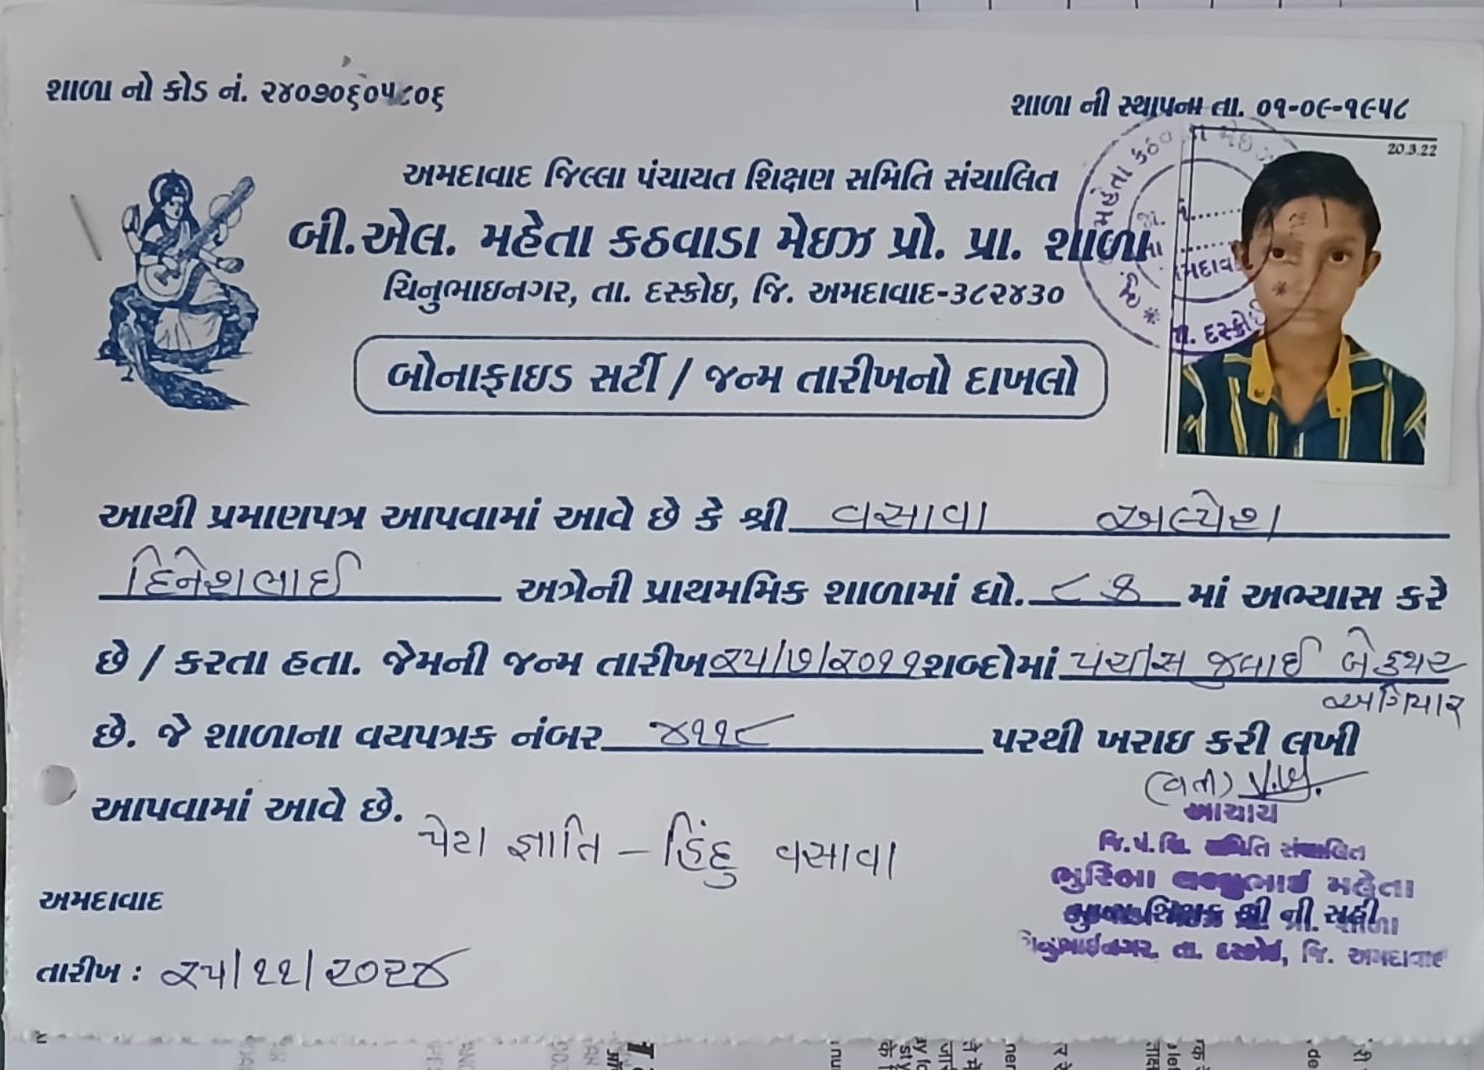 શાળા નો કોડ નં. ૨૪૦૭૦૬૦૫૮૦૬
શાળા ની સ્થાપના તા. ૦૧-૦૯-૧૯૫૮
20.3.22
અમદાવાદ જિલ્લા પંચાયત શિક્ષણ સમિતિ સંચાલિત
બી.એલ. મહેતા કઠવાડા મેઇઝ પ્રો. પ્રા. શાળા
ચિનુભાઇનગર, તા. દસ્ક્રોઇ, જિ. અમદાવાદ-૩૮૨૪૩૦
તા. દસ્ક્રોઈ
બોનાફાઇડ સર્ટી / જન્મ તારીખનો દાખલો
આથી પ્રમાણપત્ર આપવામાં આવે છે કે શ્રી વસાવા અલ્પેશ
દિનેશભાઈ અત્રેની પ્રાથમમિક શાળામાં ધો. ૮ ક માં અભ્યાસ કરે
છે / કરતા હતા. જેમની જન્મ તારીખ ૨૫/૭/૨૦૧૧ શબ્દોમાં પચીસ જુલાઈ બે હજાર
અગિયાર
છે. જે શાળાના વયપત્રક નંબર ૪૧૧૮ પરથી ખરાઇ કરી લખી
આપવામાં આવે છે.
(વતી) V.y.
પેટા જ્ઞાતિ - હિંદુ વસાવા
આચાર્ય
જિ.પં.શિ. સમિતિ સંચાલિત
ભુરિબા લલ્લુભાઈ મહેતા
મુખ્ય શિક્ષક શ્રી ની સહી
ચિનુભાઈનગર, તા. દસ્ક્રોઈ, જિ. અમદાવાદ
અમદાવાદ
તારીખ : ૨૫/૧૧/૨૦૨૪